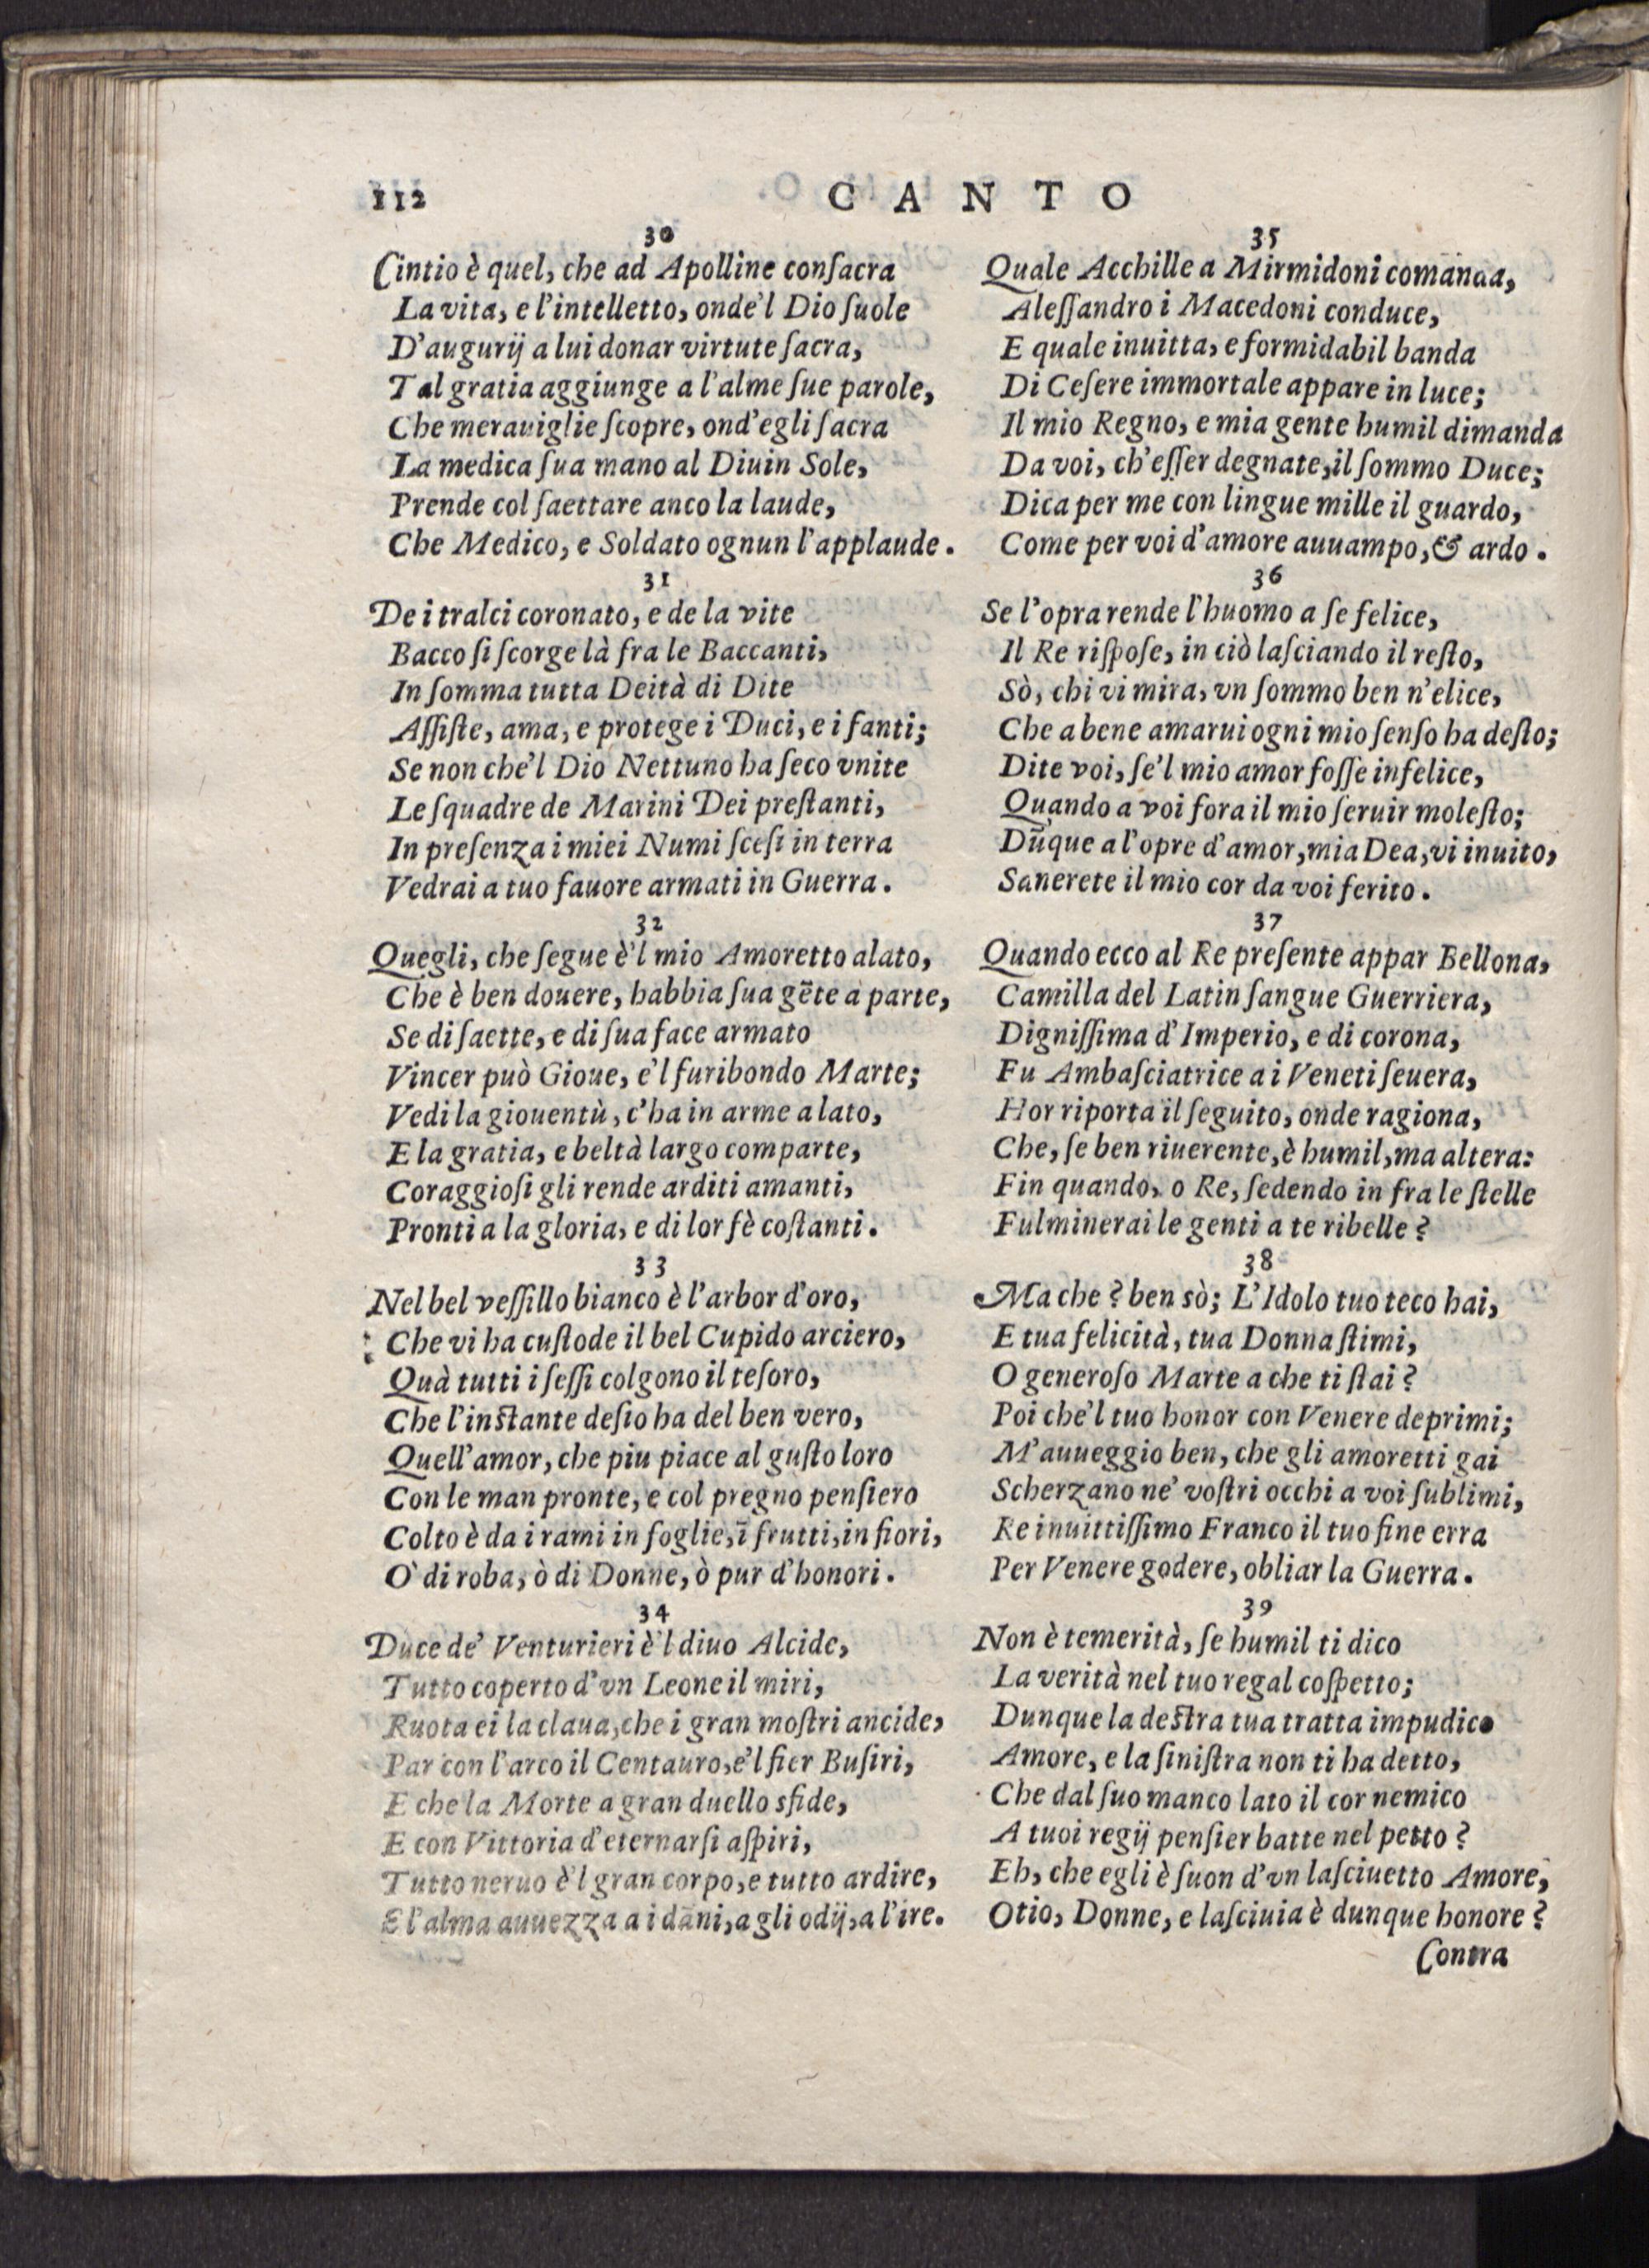 112
CANTO
30
Cintio è quel, che ad Apolline conſacra
La vita, e l'intelletto, onde'l Dio ſuole
D'augurij a lui donar virtute ſacra,
Tal gratia aggiunge a l'alme ſue parole,
Che merauiglie ſcopre, ond'egli ſacra
La medica ſua mano al Diuin Sole,
Prende col ſaettare anco la laude,
Che Medico, e Soldato ognun l'applaude.
31
De i tralci coronato, e de la vite
Bacco ſi ſcorge là fra le Baccanti,
In ſomma tutta Deità di Dite
Aſſiſte, ama, e protege i Duci, e i fanti;
Se non che'l Dio Nettuno ha ſeco vnite
Le ſquadre de Marini Dei preſtanti,
In preſenza i miei Numi ſceſi in terra
Vedrai a tuo fauore armati in Guerra.
32
Quegli, che ſegue è'l mio Amoretto alato,
Che è ben douere, habbia ſua gẽte a parte,
Se di ſaette, e di ſua face armato
Vincer può Gioue, e'l furibondo Marte;
Vedi la giouentù, c'ha in arme a lato,
E la gratia, e beltà largo comparte,
Coraggioſi gli rende arditi amanti,
Pronti a la gloria, e di lor fè coſtanti.
33
Nel bel veſſillo bianco è l'arbor d'oro,
Che vi ha cuſtode il bel Cupido arciero,
Quà tutti i ſeſſi colgono il teſoro,
Che l'inſtante deſio ha del ben vero,
Quell'amor, che piu piace al guſto loro
Con le man pronte, e col pregno penſiero
Colto è da i rami in foglie, ĩ frutti, in fiori,
O' di roba, ò di Donne, ò pur d'honori.
34
Duce de' Venturieri è'l diuo Alcide,
Tutto coperto d'vn Leone il miri,
Ruota ei la claua, che i gran moſtri ancide,
Par con l'arco il Centauro, e'l fier Buſiri,
E che la Morte a gran duello sfide,
E con Vittoria d'eternarſi aſpiri,
Tutto neruo è'l gran corpo, e tutto ardire,
E l'alma auuezza a i dãni, a gli odij, a l'ire.
35
Quale Acchille a Mirmidoni comãnda,
Aleſſandro i Macedoni conduce,
E quale inuitta, e formidabil banda
Di Ceſere immortale appare in luce;
Il mio Regno, e mia gente humil dimanda
Da voi, ch'eſſer degnate, il ſommo Duce;
Dica per me con lingue mille il guardo,
Come per voi d'amore auuampo, & ardo.
36
Se l'opra rende l'huomo a ſe felice,
Il Re riſpoſe, in ciò laſciando il reſto,
Sò, chi vi mira, vn ſommo ben n'elice,
Che a bene amarui ogni mio ſenſo ha deſto;
Dite voi, ſe'l mio amor foſſe infelice,
Quando a voi fora il mio ſeruir moleſto;
Dũque a l'opre d'amor, mia Dea, vi inuito,
Sanerete il mio cor da voi ferito.
37
Quando ecco al Re preſente appar Bellona,
Camilla del Latin ſangue Guerriera,
Digniſſima d'Imperio, e di corona,
Fu Ambaſciatrice a i Veneti ſeuera,
Hor riporta il ſeguito, onde ragiona,
Che, ſe ben riuerente, è humil, ma altera:
Fin quando, o Re, ſedendo in fra le ſtelle
Fulminerai le genti a te ribelle?
38
Ma che? ben sò; L'Idolo tuo teco hai,
E tua felicità, tua Donna ſtimi,
O generoſo Marte a che ti ſtai?
Poi che'l tuo honor con Venere deprimi;
M'auueggio ben, che gli amoretti gai
Scherzano ne' voſtri occhi a voi ſublimi,
Re inuittiſſimo Franco il tuo fine erra
Per Venere godere, obliar la Guerra.
39
Non è temerità, ſe humil ti dico
La verità nel tuo regal coſpetto;
Dunque la deſtra tua tratta impudico
Amore, e la ſiniſtra non ti ha detto,
Che dal ſuo manco lato il cor nemico
A tuoi regij penſier batte nel petto?
Eh, che egli è ſuon d'vn laſciuetto Amore,
Otio, Donne, e laſciuia è dunque honore?
Contra